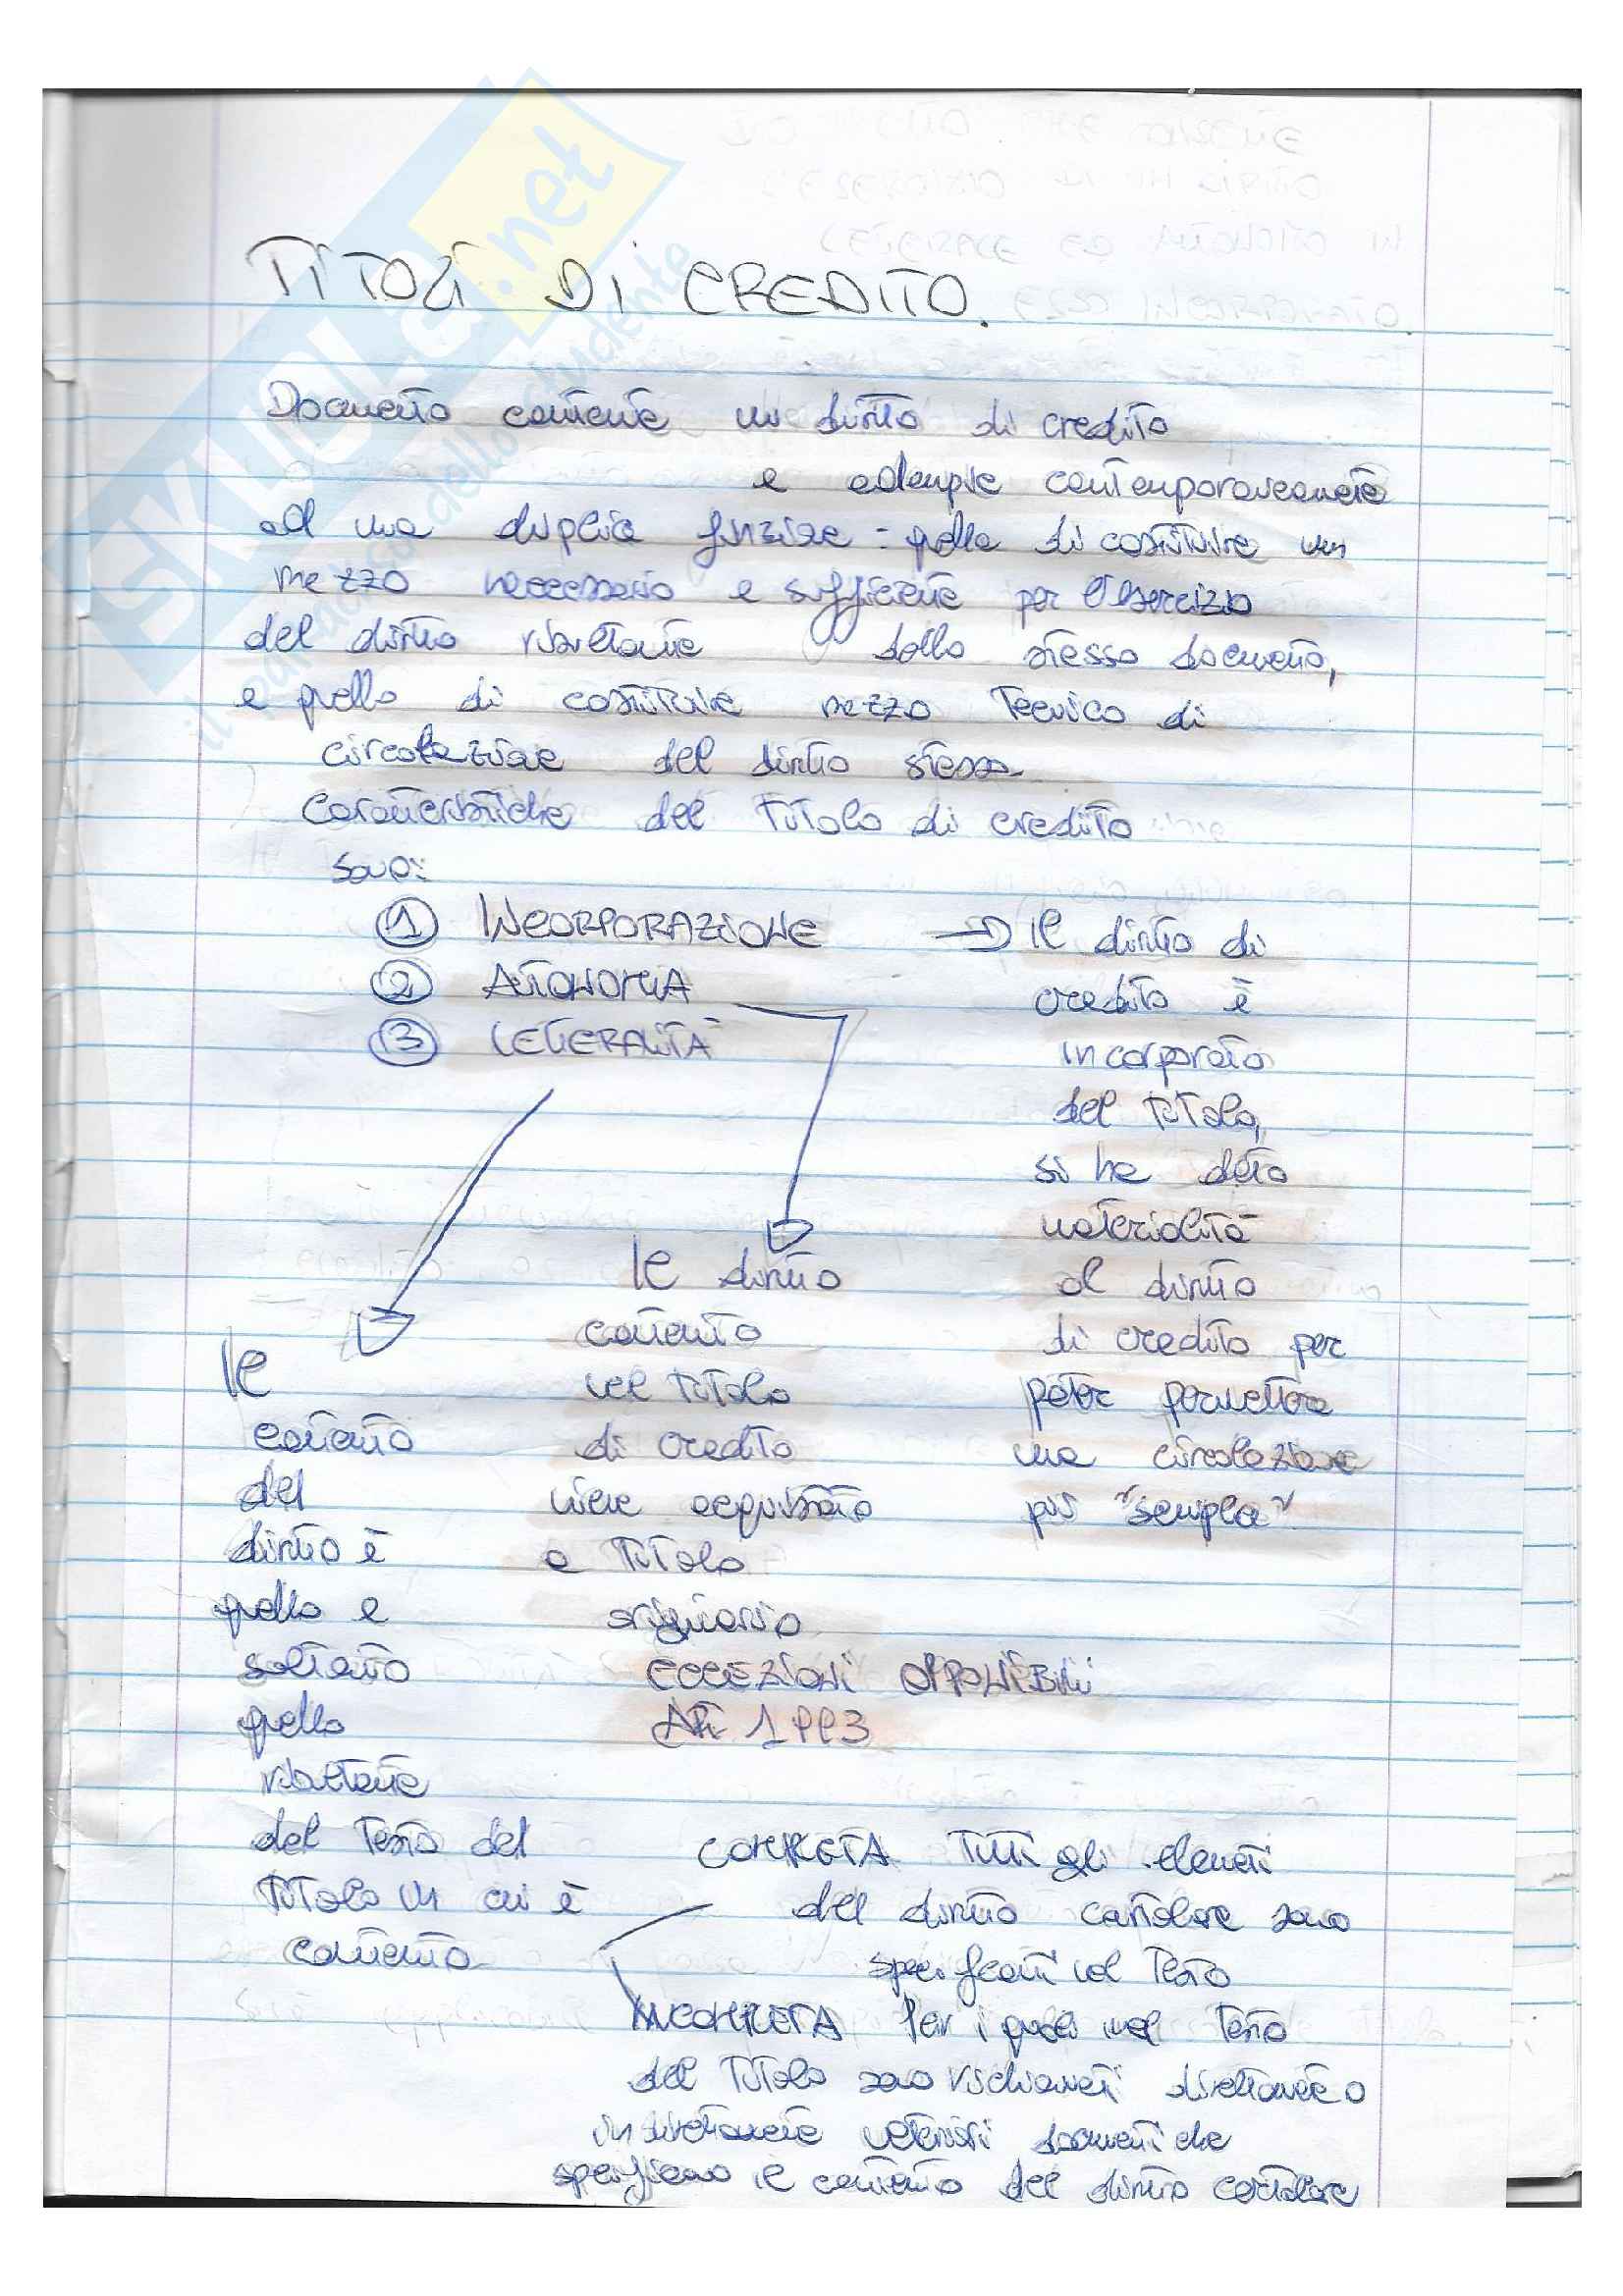 TITOLI DI CREDITO.
Documento contenente un diritto di credito
e adempie contemporaneamente
ad una duplice funzione: quella di costituire un
mezzo necessario e sufficiente per l'esercizio
del diritto risultante dallo stesso documento,
e quello di costituire mezzo tecnico di
circolazione del diritto stesso.
Caratteristiche del titolo di credito
sono:
1 INCORPORAZIONE → Il diritto di
2 AUTONOMIA
3 LETTERALITÀ
credito è
incorporato
del titolo,
si ha dato
materialità
al diritto
di credito per
poter permettere
una circolazione
più "semplice"
Il diritto
contenuto
nel titolo
di credito
viene acquistato
a titolo
originario
ECCEZIONI OPPONIBILI
Art 1993
Il
contenuto
del
diritto è
quello e
soltanto
quello
risultante
del testo del
titolo in cui è
contenuto
COMPLETA Tutti gli elementi
del diritto cartolare sono
specificati nel testo
INCOMPLETA Per i quali nel testo
del titolo sono richiamati direttamente o
indirettamente ulteriori documenti che
specificano il contenuto del diritto cartolare
SKUOLA.net
il paradiso dello studente